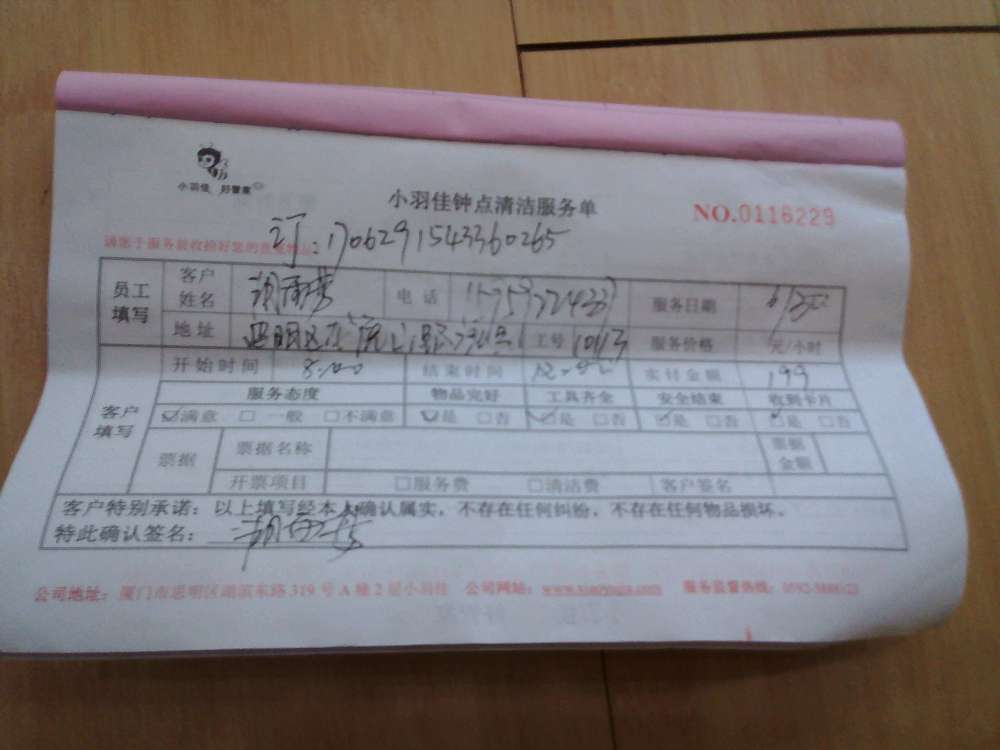 小羽佳 好管家
小羽佳钟点清洁服务单
NO.0116229
订:1706291543360265
请您于服务前收拾好您的贵重物品
员工填写 客户姓名 电话 服务日期
地址 工号 10113 服务价格 元/小时
客户填写 开始时间 8:00 结束时间 实付金额 199
服务态度 物品完好 工具齐全 安全结束 收到卡片
☑满意 □一般 □不满意 ☑是 □否 ☑是 □否 ☑是 □否 ☑是 □否
票据 票据名称 票据金额
开票项目 □服务费 □清洁费 客户签名
客户特别承诺:以上填写经本人确认属实,不存在任何纠纷,不存在任何物品损坏。
特此确认签名:
公司地址:厦门市思明区湖滨东路319号A幢2层小羽佳 公司网站: 服务监督热线: